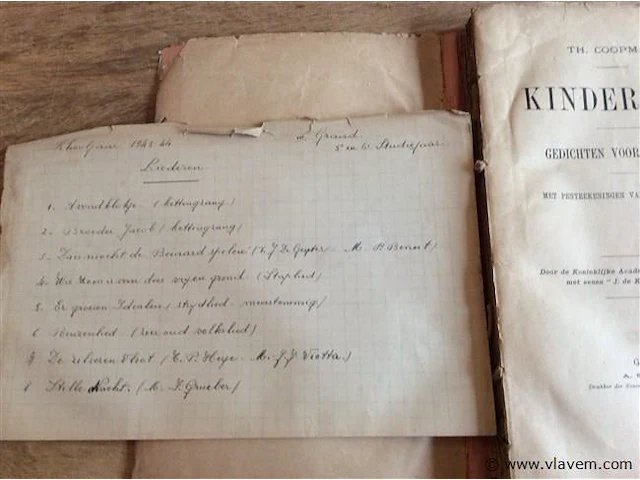 Schooljaar 1943-44
2e Graad
5e en 6e Studiejaar
Liederen
1. Avondklokje (kettingzang)
2. Broeder Jacob (kettingzang)
3. Dan mocht de Beiaard spelen (T. J. De Geyter - M. P. Benoit)
4. Wij komen van den vrijen grond (Staplied)
5. Er groeien Idealen (strijdlied - meerstemmig)
6 Reuzenlied (zeer oud volkslied)
7 De zilveren Vloot (T. P. Heye - M. J. J. Viotta)
8 Stille Nacht. (M. F. Gruber)
TH. COOPM
KINDER
GEDICHTEN VOOR
MET PENTEEKENINGEN VA
Door de Koninklijke Acad
met eenen "J. de K
G
A. S
Drukker der Konin
© www.vlavem.com